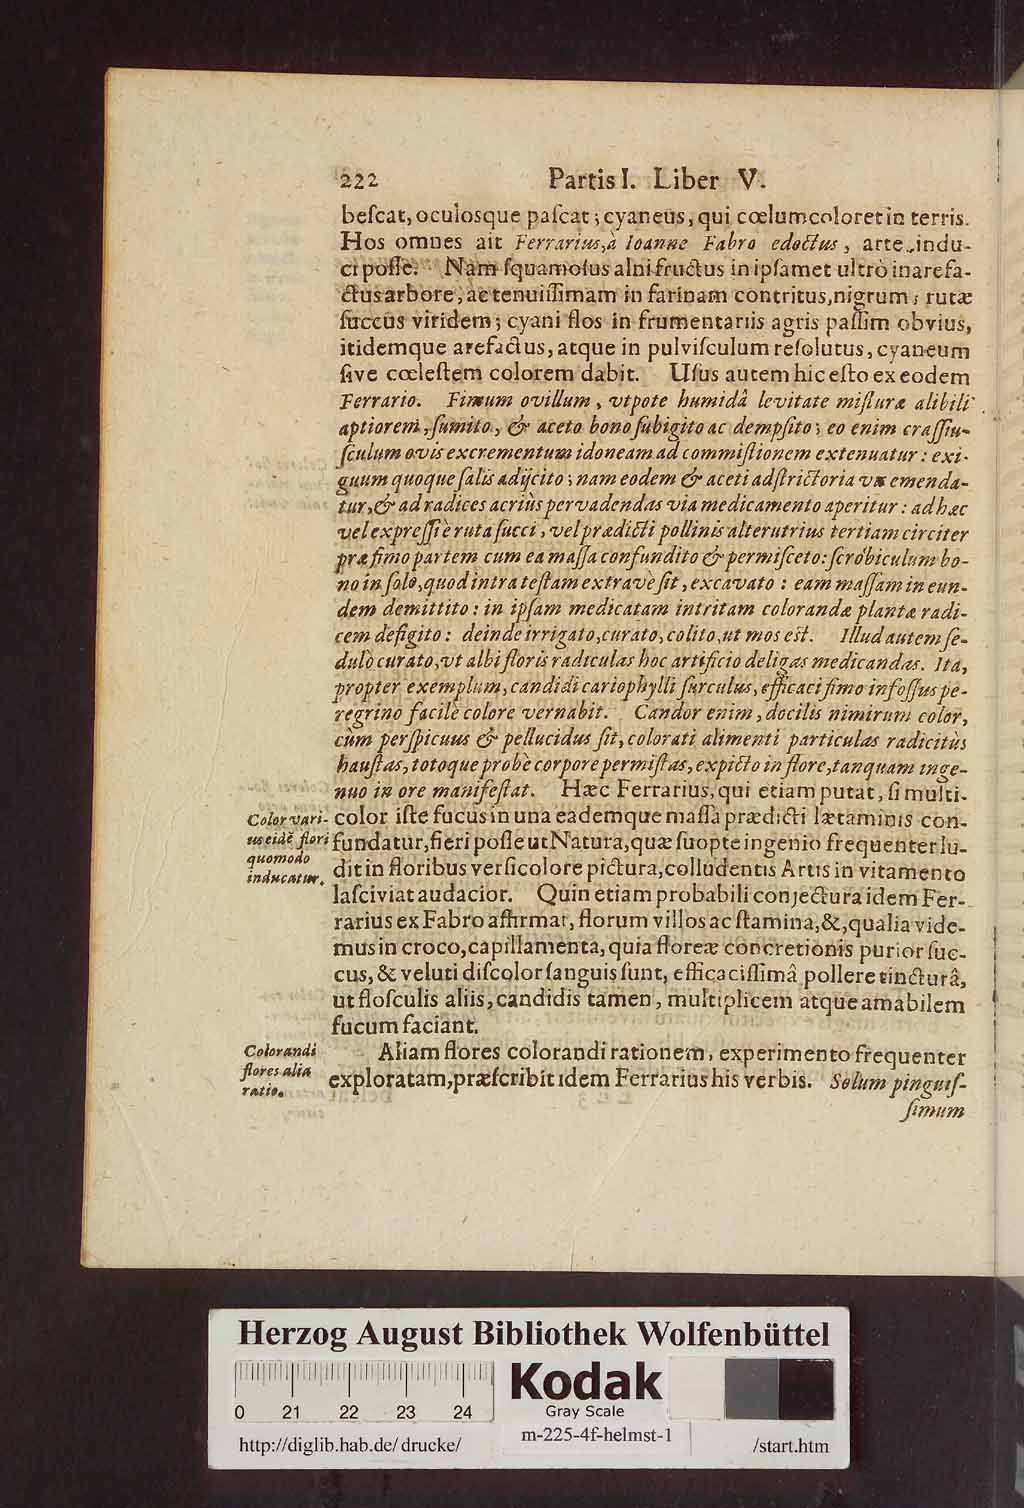 222 Partis I. Liber V.
beſcat, oculosque paſcat; cyaneus, qui cœlum coloret in terris.
Hos omnes ait Ferrarius, à Ioanne Fabro edoctus, arte indu-
ci poſſe. Nam ſquamoſus alni fructus in ipſamet ultrò inarefa-
ctus arbore, ac tenuiſſimam in farinam contritus, nigrum; rutæ
ſuccus viridem; cyani flos in frumentariis agris paſſim obvius,
itidemque arefactus, atque in pulviſculum reſolutus, cyaneum
ſive cœleſtem colorem dabit. Uſus autem hic eſto ex eodem
Ferrario. Fimum ovillum, vtpote humidâ levitate miſturæ alibili
aptiorem, ſumito, & aceto bono ſubigito ac dempſito; eo enim craſſiu-
ſculum ovis excrementum idoneam ad commiſtionem extenuatur: exi-
guum quoque ſalis adijcito; nam eodem & aceti adſtrictoria vis emenda-
tur, & ad radices acriùs pervadendas via medicamento aperitur: ad hæc
vel expreſſi è ruta ſucci, vel prædicti pollinis alterutrius tertiam circiter
præ fimo partem cum ea maſſa confundito & permiſceto: ſcrobiculum bo-
no in ſolo, quod intra teſtam extra ve ſit, excavato: eam maſſam in eun-
dem demittito: in ipſam medicatam intritam colorandæ plantæ radi-
cem defigito: deinde irrigato, curato, colito, ut mos eſt. Illud autem ſe-
dulò curato, vt albi floris radiculas hoc artificio deligas medicandas. Ita,
propter exemplum, candidi cariophylli ſurculus, efficaci fimo infoſſus pe-
regrino facilè colore vernabit. Candor enim, docilis nimirum color,
cùm perſpicuus & pellucidus ſit, colorati alimenti particulas radicitùs
hauſtas, totoque probè corpore permiſtas, expicto in flore, tanquam inge-
nuo in ore manifeſtat. Hæc Ferrarius, qui etiam putat, ſi multi-
Color vari-
us eidē flori
quomodo
inducatur.
color iſte fucus in una eademque maſſa prædicti lætaminis con-
fundatur, fieri poſſe ut Natura, quæ ſuopte ingenio frequenter lu-
dit in floribus verſicolore pictura, colludentis Artis in vitamento
laſciviat audacior. Quin etiam probabili conjectura idem Fer-
rarius ex Fabro affirmat, florum villos ac ſtamina, &, qualia vide-
mus in croco, capillamenta, quia floreæ concretionis purior ſuc-
cus, & veluti diſcolor ſanguis ſunt, efficaciſſimâ pollere tincturâ,
ut floſculis aliis, candidis tamen, multiplicem atque amabilem
fucum faciant.
Colorandi
flores alia
ratio.
Aliam flores colorandi rationem, experimento frequenter
exploratam, præſcribit idem Ferrarius his verbis. Solum pinguiſ-
ſimum
Herzog August Bibliothek Wolfenbüttel
0 21 22 23 24
Kodak
Gray Scale
http://diglib.hab.de/drucke/ m-225-4f-helmst-1 /start.htm